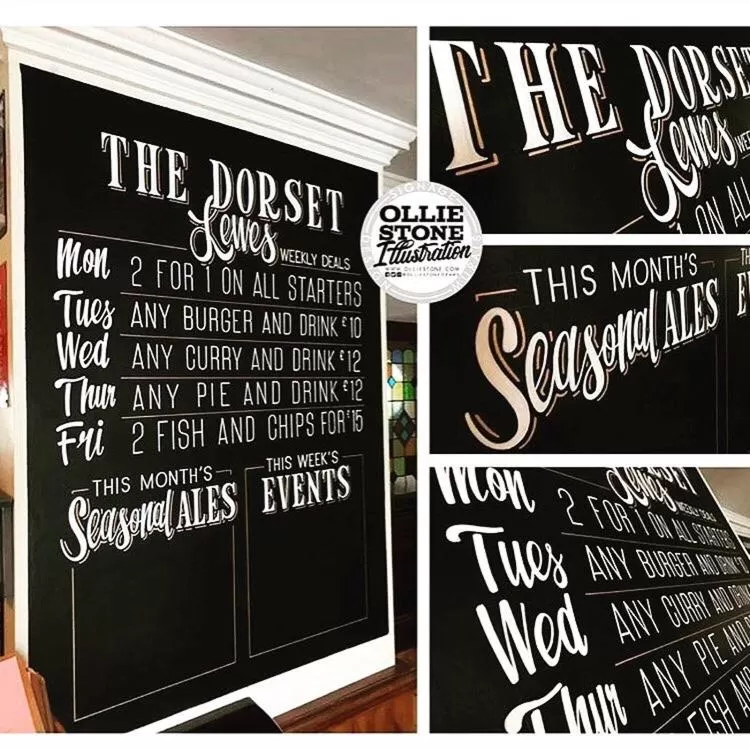 THE DORSET
Lewes
WEEKLY DEALS
Mon 2 FOR 1 ON ALL STARTERS
Tues ANY BURGER AND DRINK £10
Wed ANY CURRY AND DRINK £12
Thur ANY PIE AND DRINK £12
Fri 2 FISH AND CHIPS FOR £15
THIS MONTH'S
Seasonal ALES
THIS WEEK'S
EVENTS
SIGNAGE
OLLIE
STONE
Illustration
WWW.OLLIESTONE.COM
THE DORSET
Lewes WE
ON ALL
THIS MONTH'S
Seasonal ALES
TH
E
Mon 2 FOR 1 ON ALL STARTERS
Lewes
WEEKLY DEALS
Tues ANY BURGER AND DRINK
Wed ANY CURRY AND DRIN
Thur ANY PIE AND
FISH AN